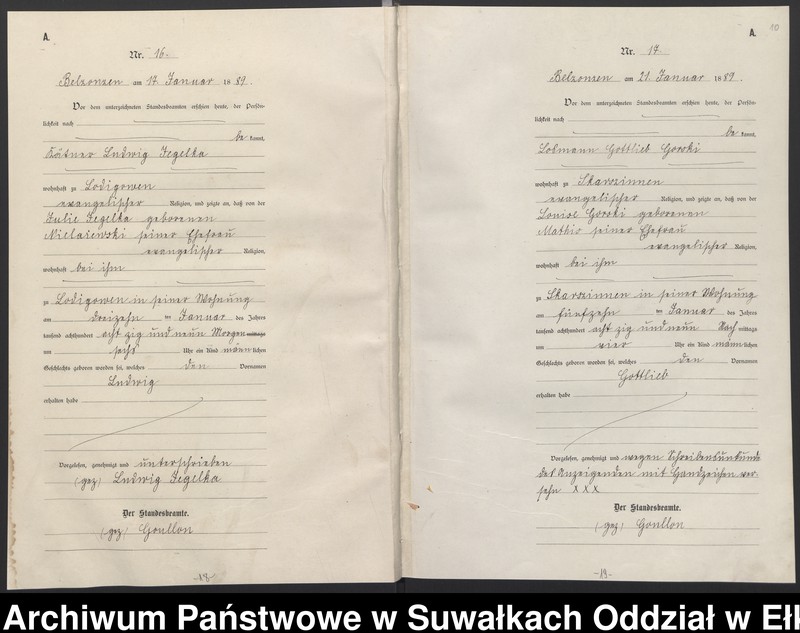 A.
Nr. 16.
Belzonzen am 17. Januar 1889.
Vor dem unterzeichneten Standesbeamten erschien heute, der Persön-
lichkeit nach
be kannt,
Kätner Ludwig Jegelka
wohnhaft zu Lodigowen
evangelischer Religion, und zeigte an, daß von der
Julie Jegelka geborenen
seiner Ehefrau
evangelischer Religion,
wohnhaft bei ihm
zu Lodigowen in seiner Wohnung
am dreizehn ten Januar des Jahres
tausend achthundert acht zig und neun Morgens mittags
um sechs Uhr ein Kind männ lichen
Geschlechts geboren worden sei, welches den Vornamen
Ludwig
erhalten habe
Vorgelesen, genehmigt und unterschrieben
(gez) Ludwig Jegelka
Der Standesbeamte.
(gez) Goullon
-18-
A.
10
Nr. 17
Belzonzen am 21. Januar 1889.
Vor dem unterzeichneten Standesbeamten erschien heute, der Persön-
lichkeit nach
be kannt,
Losmann Gottlieb Gorski
wohnhaft zu Skarozinnen
evangelischer Religion, und zeigte an, daß von der
Louise Gorski geborenen
Mathis seiner Ehefrau
evangelischer Religion,
wohnhaft bei ihm
zu Skarozinnen in seiner Wohnung
am fünfzehn ten Januar des Jahres
tausend achthundert acht zig und neun Nach mittags
um vier Uhr ein Kind männ lichen
Geschlechts geboren worden sei, welches den Vornamen
Gottlieb
erhalten habe
Vorgelesen, genehmigt und wegen Schreibensunkunde
des Anzeigenden mit Handzeichen ver-
sehn X X X
Der Standesbeamte.
(gez) Goullon
-19-
Archiwum Państwowe w Suwałkach Oddział w Ełk